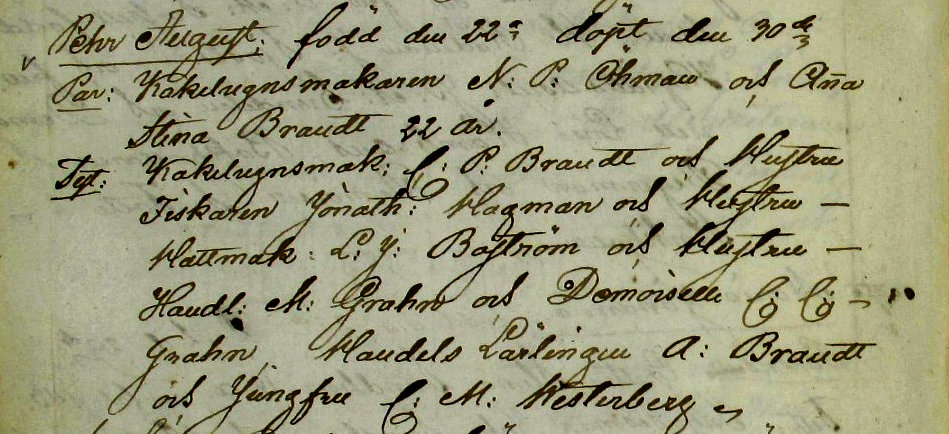 Pehr August, född den 22ᵃ döpt den 30de
Par: Kakelugnsmakaren N: P: Öhman och Aña
Stina Brandt 22 år.
Tyt: Kakelugnsmak: C: P: Brandt och Hustru
Fiskaren Jonath: Hagman och Hustru —
Hattmak: L: J: Boström och Hustru —
Handl: M: Grahn och Demoiselle C: C: —
Grahn, Handels Lärlingen A: Brandt
och Jungfru C: M: Westerberg